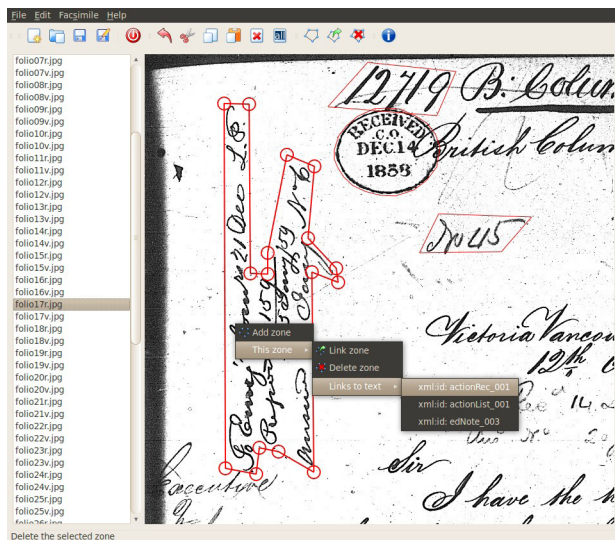 File Edit Facsimile Help
folio07r.jpg
folio07v.jpg
folio08r.jpg
folio08v.jpg
folio09r.jpg
folio09v.jpg
folio10r.jpg
folio10v.jpg
folio11r.jpg
folio11v.jpg
folio12r.jpg
folio12v.jpg
folio13r.jpg
folio13v.jpg
folio14r.jpg
folio14v.jpg
folio15r.jpg
folio15v.jpg
folio16r.jpg
folio16v.jpg
folio17r.jpg
folio17v.jpg
folio18r.jpg
folio18v.jpg
folio19r.jpg
folio19v.jpg
folio20r.jpg
folio20v.jpg
folio21r.jpg
folio21v.jpg
folio22r.jpg
folio22v.jpg
folio23r.jpg
folio23v.jpg
folio24r.jpg
folio24v.jpg
folio25r.jpg
folio25v.jpg
folio26r.jpg
12719 B. Colum
RECEIVED
C.O.
DEC.14
1858
British Colum
No 45
Victoria Vancou
12th
Sir
I have the h
Executive
21 Dec
Add zone
This zone
Link zone
Delete zone
Links to text
xml:id: actionRec_001
xml:id: actionList_001
xml:id: edNote_003
Delete the selected zone